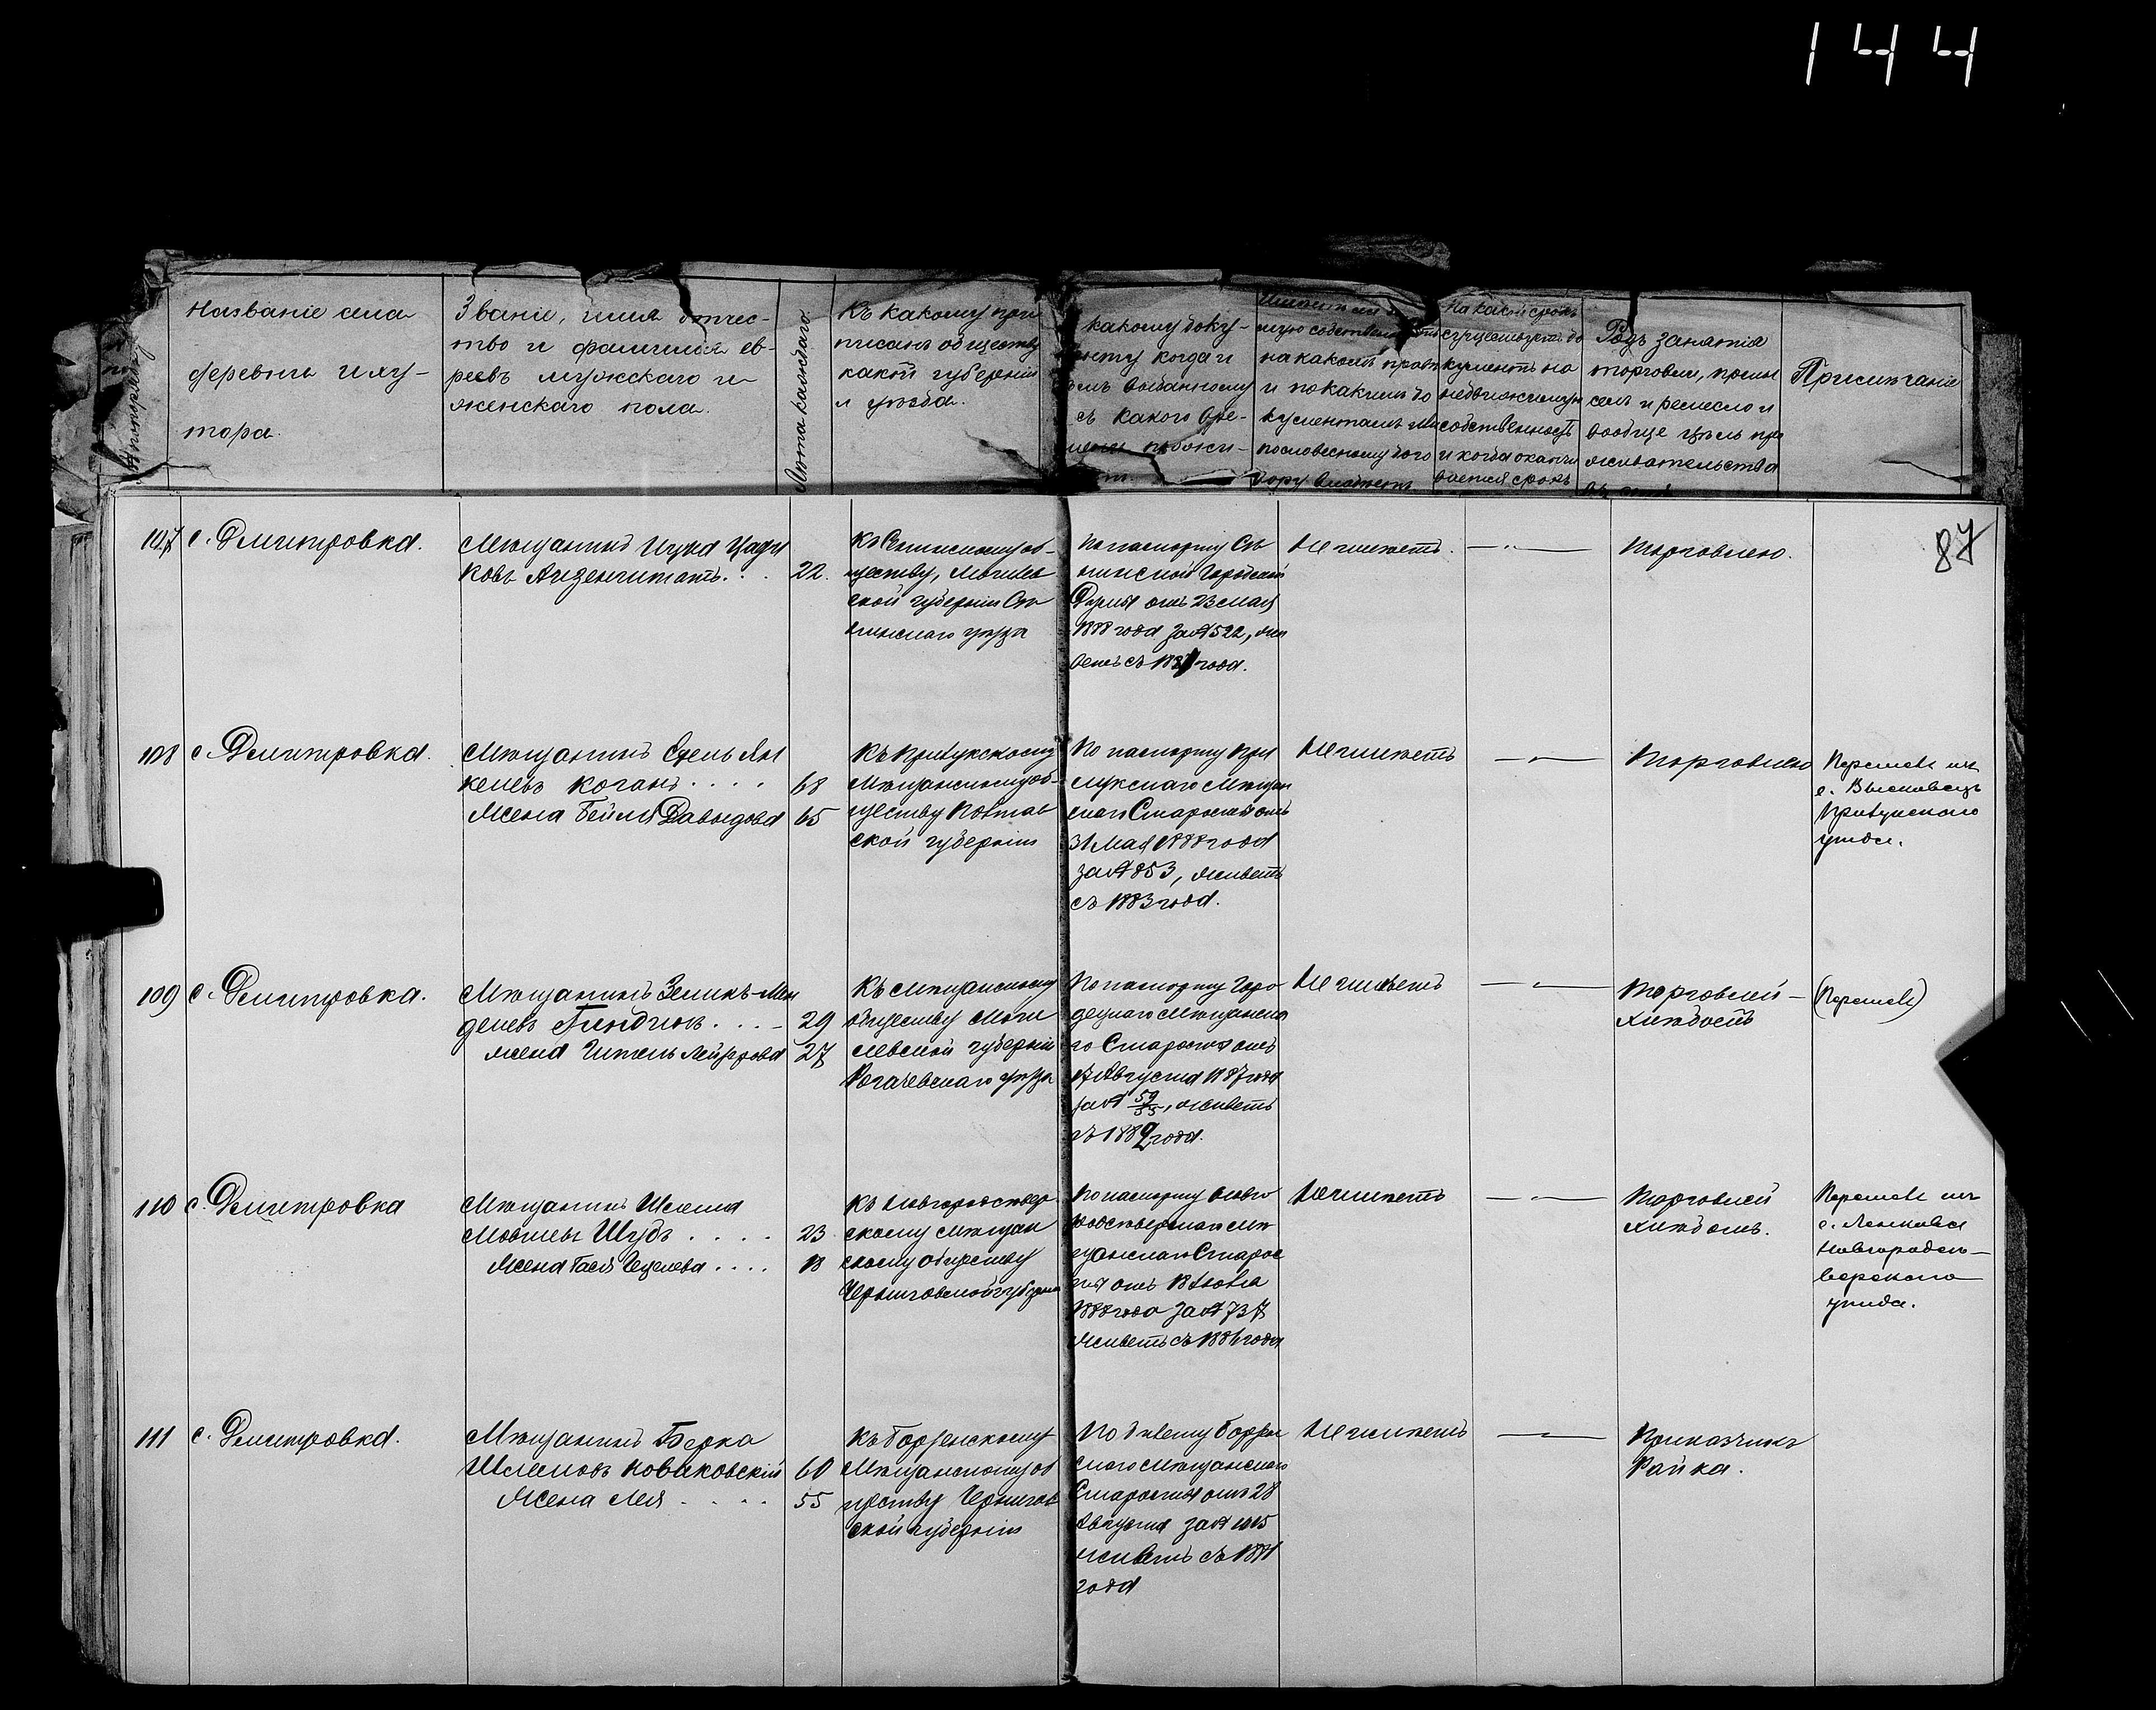 144
Названіе села
деревни и ху-
тора.
Званіе, имя отчес-
тво и фамилія ев-
реевъ мужскаго и
женскаго пола.
Лѣта каждаго.
Къ какому при
писанъ обществу
какой губерніи
и уѣзда.
какому доку-
менту когда и
кѣмъ выданному
съ какого вре-
мени прожи-
на какомъ правѣ
и по какимъ до
кументамъ или
пословесному дого
вору владѣетъ
На какой срокъ
существуетъ до
кументъ на
недвижимую
собственность
и когда оканчи
вается срокъ
Родъ занятія
торговли, промы
селъ и ремесло и
вообще цѣль про
живательства
Примѣчаніе
87
107
с. Дмитровка.
Мѣщанинъ Ицка Цади
ковъ Айзенштатъ. . . 22.
ществу, Могилев
ской губерніи Сѣ
ннинскаго уѣзда
По паспорту Сѣ
ннинской Городской
Думы отъ 23 мая
1888 года за № 522, жи
ветъ съ 1887 года.
Не имѣетъ.
— " —
Торговлею.
108
с. Дмитровка.
Мѣщанинъ Сдель Ян
келевъ Коганъ . . . . 68
Жена Бейля Давыдова 65
Къ Прилукскому
Мѣщанскому об-
ществу Полтав
ской губерніи
По паспорту При
лукскаго Мѣщан
скаго Старосты отъ
31 Мая 1888 года
за № 853, живетъ
съ 1883 года.
Не имѣетъ
— " —
Торговлею
Перешелъ изъ
Прилукскаго
уѣзда.
109
с. Дмитровка.
Мѣщанинъ Зеликъ-Мен
делевъ Гиндинъ. . . - 29
жена Гитель Лейзерова 27
Къ мѣщанскому
обществу Моги
левской губерніи
Рогачевскаго уѣзда
По паспорту Горо
децкаго Мѣщанска
го Старосты отъ
17 Августа 1887 года
за № 59/55, живетъ
съ 1882 года.
Не имѣетъ
— " —
Торговлей-
хлѣбомъ
(Перешелъ)
110
с. Дмитровка
Мѣщанинъ Шлема
Мовшевъ Шубъ . . . . 23
Жена Гася Гецелева . . . . 18
Къ Новгородсѣвер
скому мѣщан
скому обществу
Черниговской губерніи
По паспорту Новго
родсѣверскаго мѣ
щанскаго Старос
ты отъ 18 Іюля
1888 года за № 737
живетъ съ 1886 года
Не имѣетъ
— " —
Торговлей
хлѣбомъ.
Перешелъ изъ
Новгородсѣ-
верскаго
уѣзда.
111
с. Дмитровка.
Мѣщанинъ Берка
Шлемовъ Новаковскій 60
Жена Лея . . . . 55
Къ Борзенскому
Мѣщанскому об
ществу Чернигов
ской губерніи
По билету Борзен
скаго Мѣщанскаго
Старосты отъ 28
Августа за № 1015
живетъ съ 1881
года
Не имѣетъ
— " —
Приказчикъ
Райка.